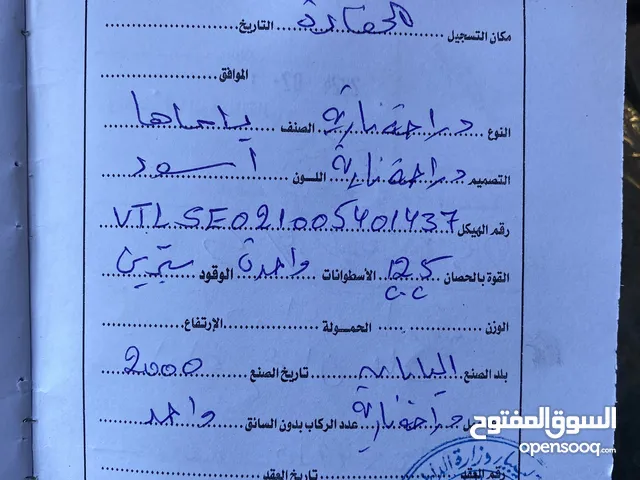 مكان التسجيل الحفارة التاريخ
الموافق
النوع دراجة نارية الصنف ياماها
التصميم دراجة نارية اللون أسود
رقم الهيكل VTLSE021005401437
القوة بالحصان 125 cc الأسطوانات واحدة الوقود بنزين
الوزن الحمولة الإرتفاع
بلد الصنع اليابان تاريخ الصنع 2000
دراجة نارية عدد الركاب بدون السائق واحد
رقم العقد تاريخ العقد
السوق المفتوح
opensooq.com